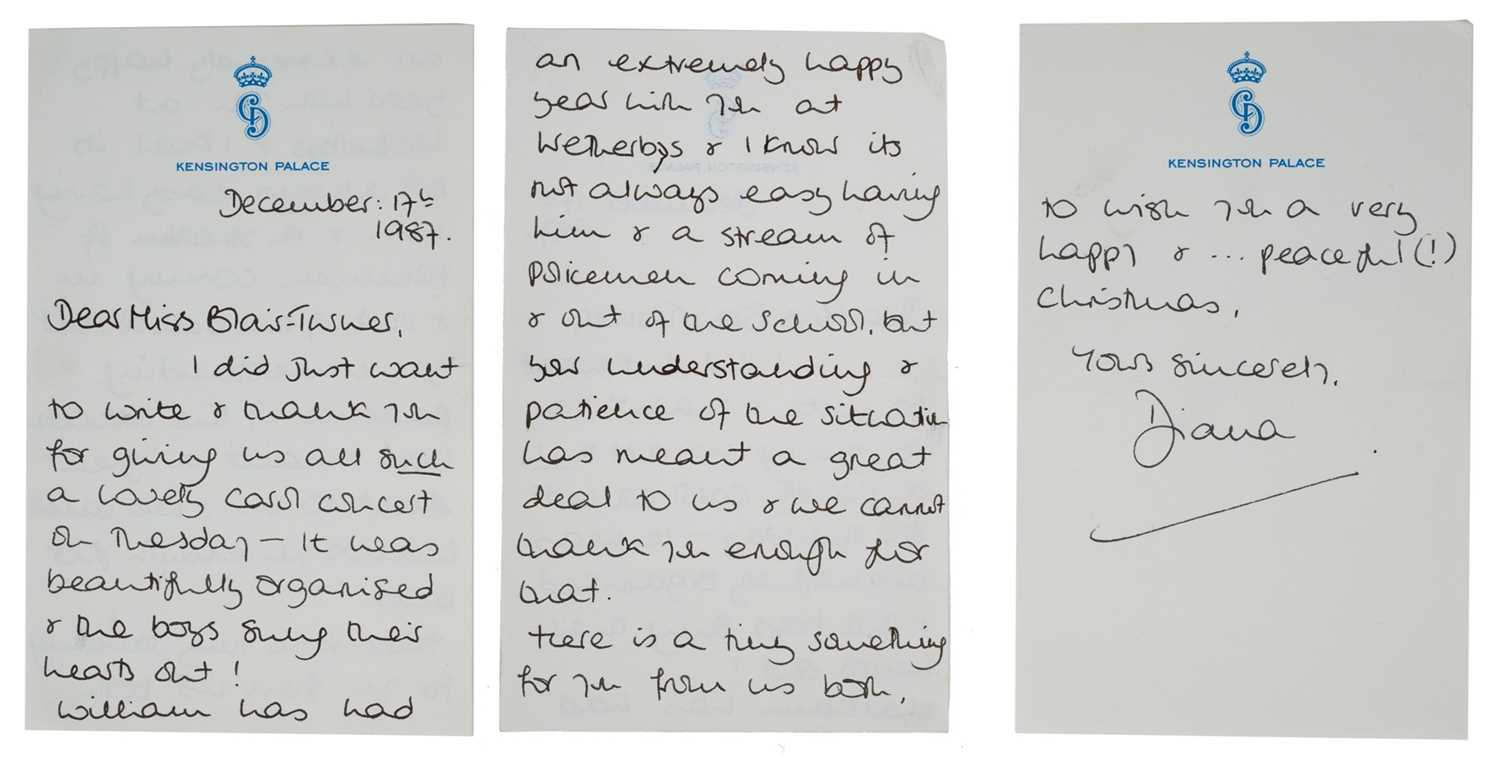 KENSINGTON PALACE
December: 17th
1987.
Dear Miss Blair-Turner,
I did just want
to write & thank you
for giving us all such
a lovely carol concert
on Tuesday - It was
beautifully organised
& the boys sung their
hearts out!
William has had
an extremely happy
year with you at
Wetherbys & I know its
not always easy having
him & a stream of
policemen coming in
& out of the school, but
your understanding &
patience of the situation
has meant a great
deal to us & we cannot
thank you enough for
that.
There is a tiny something
for you from us both,
KENSINGTON PALACE
to wish you a very
happy & ... peaceful (!)
Christmas,
Yours sincerely,
Diana